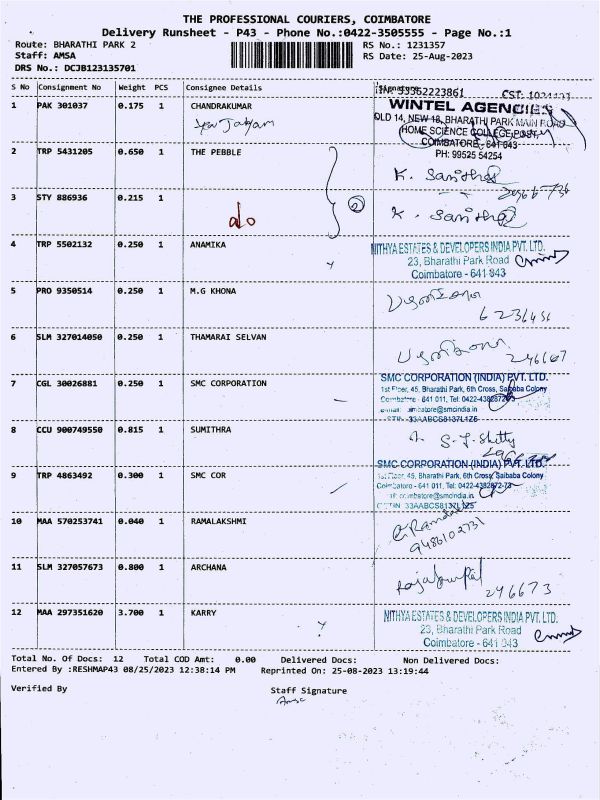 THE PROFESSIONAL COURIERS, COIMBATORE
Delivery Runsheet - P43 - Phone No.:0422-3505555 - Page No.:1
Route: BHARATHI PARK 2 RS No.: 1231357
Staff: AMSA RS Date: 25-Aug-2023
DRS No.: DCJB123135701
S No Consignment No Weight PCS Consignee Details
1 PAK 301037 0.175 1 CHANDRAKUMAR
WINTEL AGENCIES
OLD 14, NEW 18, BHARATHI PARK MAIN ROAD
HOME SCIENCE COLLEGE POST,
COIMBATORE - 641 043
PH: 99525 54254
2 TRP 5431205 0.650 1 THE PEBBLE
K. Santhos
3 STY 886936 0.215 1
K. Santhos
4 TRP 5502132 0.250 1 ANAMIKA
NITHYA ESTATES & DEVELOPERS INDIA PVT. LTD.
23, Bharathi Park Road
Coimbatore - 641 043
5 PRO 9350514 0.250 1 M.G KHONA
6 SLM 327014050 0.250 1 THAMARAI SELVAN
246667
7 CGL 30026881 0.250 1 SMC CORPORATION
SMC CORPORATION (INDIA) PVT. LTD.
1st Floor, 45, Bharathi Park, 6th Cross, Saibaba Colony
Coimbatore - 641 011, Tel: 0422-4382872-73
8 CCU 900749550 0.815 1 SUMITHRA
S.J. Shetty
9 TRP 4863492 0.300 1 SMC COR
SMC CORPORATION (INDIA) PVT. LTD.
1st Floor, 45, Bharathi Park, 6th Cross, Saibaba Colony
Coimbatore - 641 011, Tel: 0422-4382872-73
10 MAA 570253741 0.040 1 RAMALAKSHMI
9486102731
11 SLM 327057673 0.800 1 ARCHANA
246673
12 MAA 297351620 3.700 1 KARRY
NITHYA ESTATES & DEVELOPERS INDIA PVT. LTD.
23, Bharathi Park Road
Coimbatore - 641 043
Total No. Of Docs: 12 Total COD Amt: 0.00 Delivered Docs: Non Delivered Docs:
Entered By :RESHMAP43 08/25/2023 12:38:14 PM Reprinted On: 25-08-2023 13:19:44
Verified By Staff Signature
Amsa